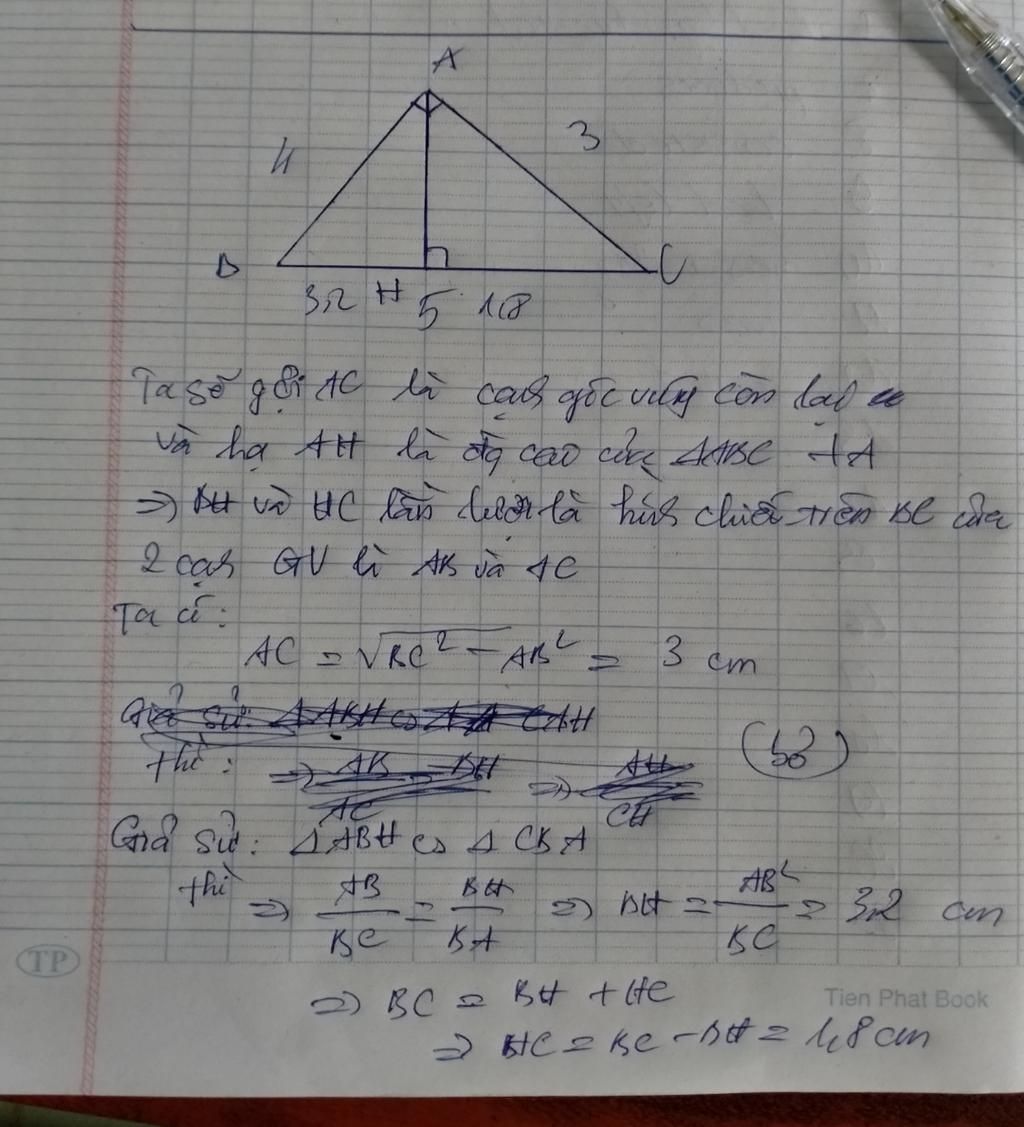 A
4
3
B
C
3,2 H 5 1,8
Ta sẽ gọi AC là cạnh góc vuông còn lại
và hạ AH là đg cao của ΔABC từ A
=> BH và HC lần lượt là hình chiếu trên BC của
2 cạnh GV là AB và AC
Ta có:
AC = √BC² - AB² = 3 cm
Giả sử: ΔABH ∽ ΔCAH
thì: => AB/AC = BH => AH/CH
(bỏ)
Giả sử: Δ ABH ∽ Δ CBA
thì => AB/BC = BH/BA => BH = AB²/BC = 3,2 cm
=> BC = BH + HC
=> HC = BC - BH = 1,8 cm
TP
Tien Phat Book